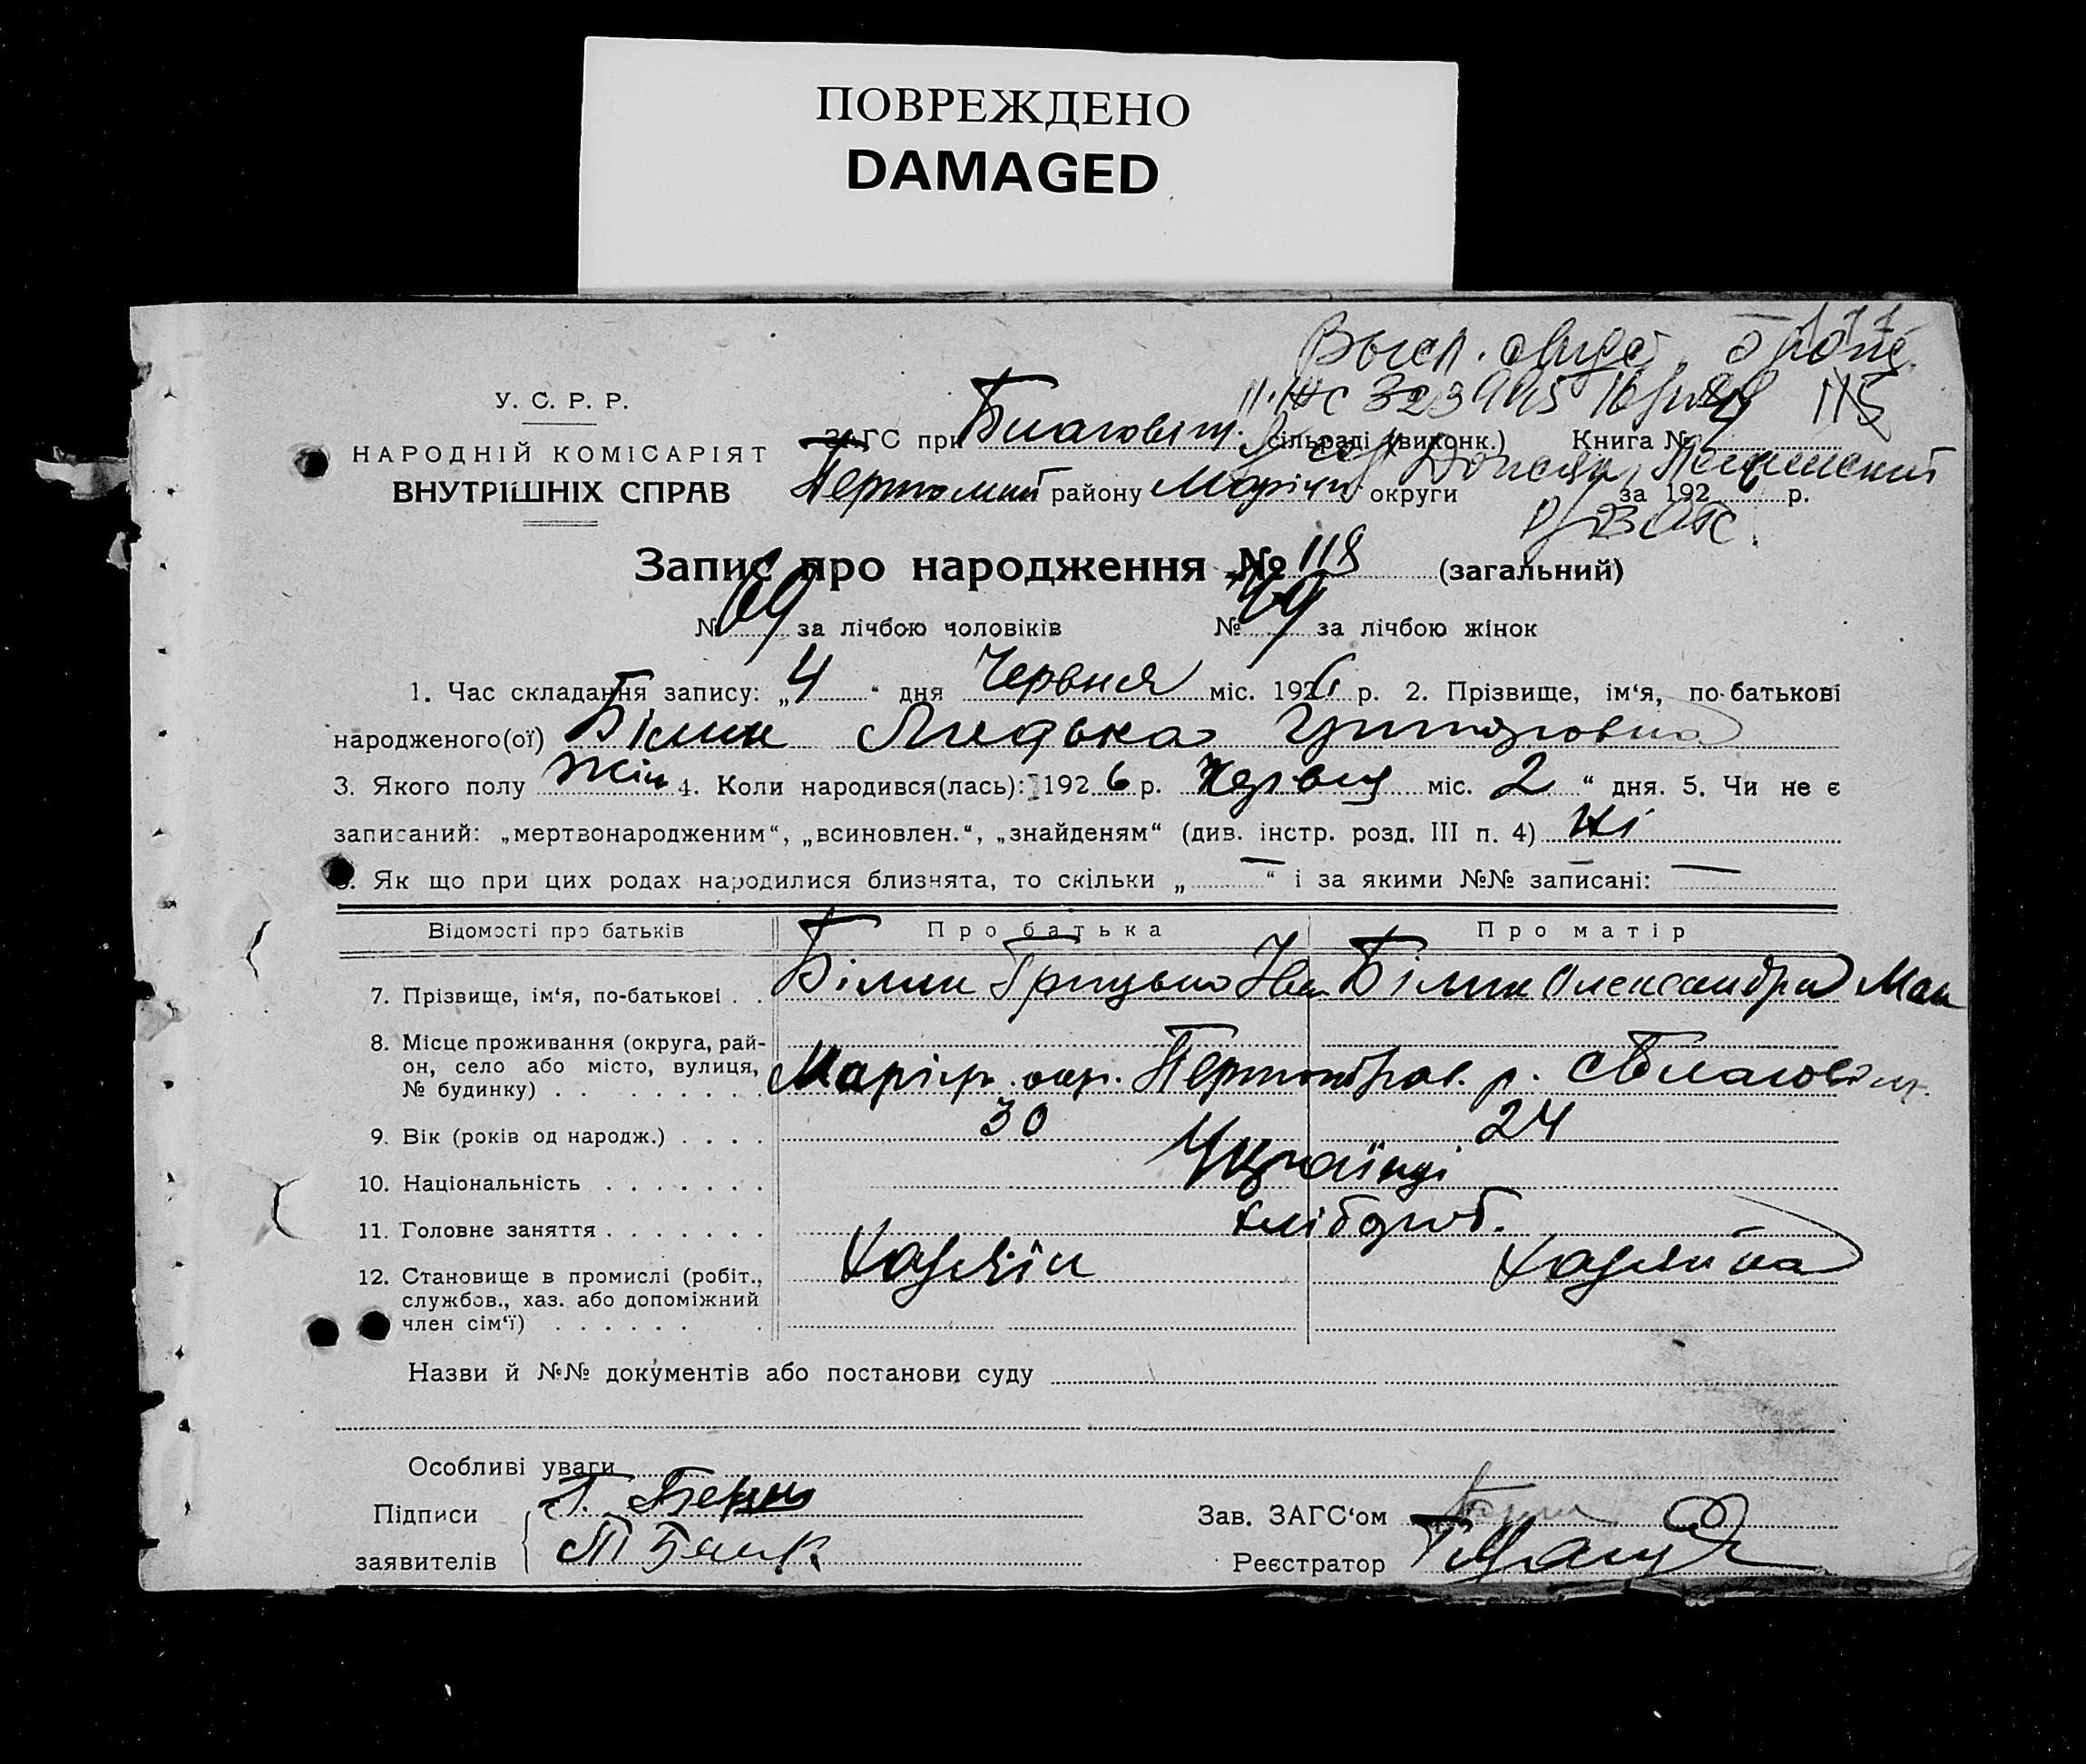 ПОВРЕЖДЕНО
DAMAGED
115
У. С. Р. Р.
НАРОДНІЙ КОМІСАРІЯТ
ВНУТРІШНІХ СПРАВ
ЗАГС при Благовіщ. сільраді (виконк.) Книга №
району Маріюп округи за 192 р.
Запис про народження № 118 (загальний)
№ 69 за лічбою чоловіків № 49 за лічбою жінок
1. Час складання запису: „ 4 “ дня Червня міс. 1926 р. 2. Прізвище, ім‘я, по-батькові
народженого(ої) Білик Лидька Григоровна
3. Якого полу жін 4. Коли народився(лась): 1926 р. Червня міс. 2 “ дня. 5. Чи не є
записаний: „мертвонародженим“, „всиновлен.“, „знайденям“ (див. інстр. розд. III п. 4) Ні
6. Як що при цих родах народилися близнята, то скільки „ — “ і за якими №№ записані: —
Відомості про батьків Про батька Про матір
7. Прізвище, ім‘я, по-батькові . . Білик Грицько Ив Білик Олександра Мак
8. Місце проживання (округа, рай-
он, село або місто, вулиця,
№ будинку) . . . . . . . . Маріюп. окр. р. с Благовіщ.
9. Вік (років од народж.) . . . . 30 24
10. Національність . . . . . . . Українці
11. Головне заняття . . . . . . . хлібороб.
12. Становище в промислі (робіт.,
службов., хаз. або допоміжний
член сім‘ї) . . . . . . Хазяїн Хазяйка
Назви й №№ документів або постанови суду
Особливі уваги
Підписи
заявителів
Зав. ЗАГС‘ом
Реєстратор